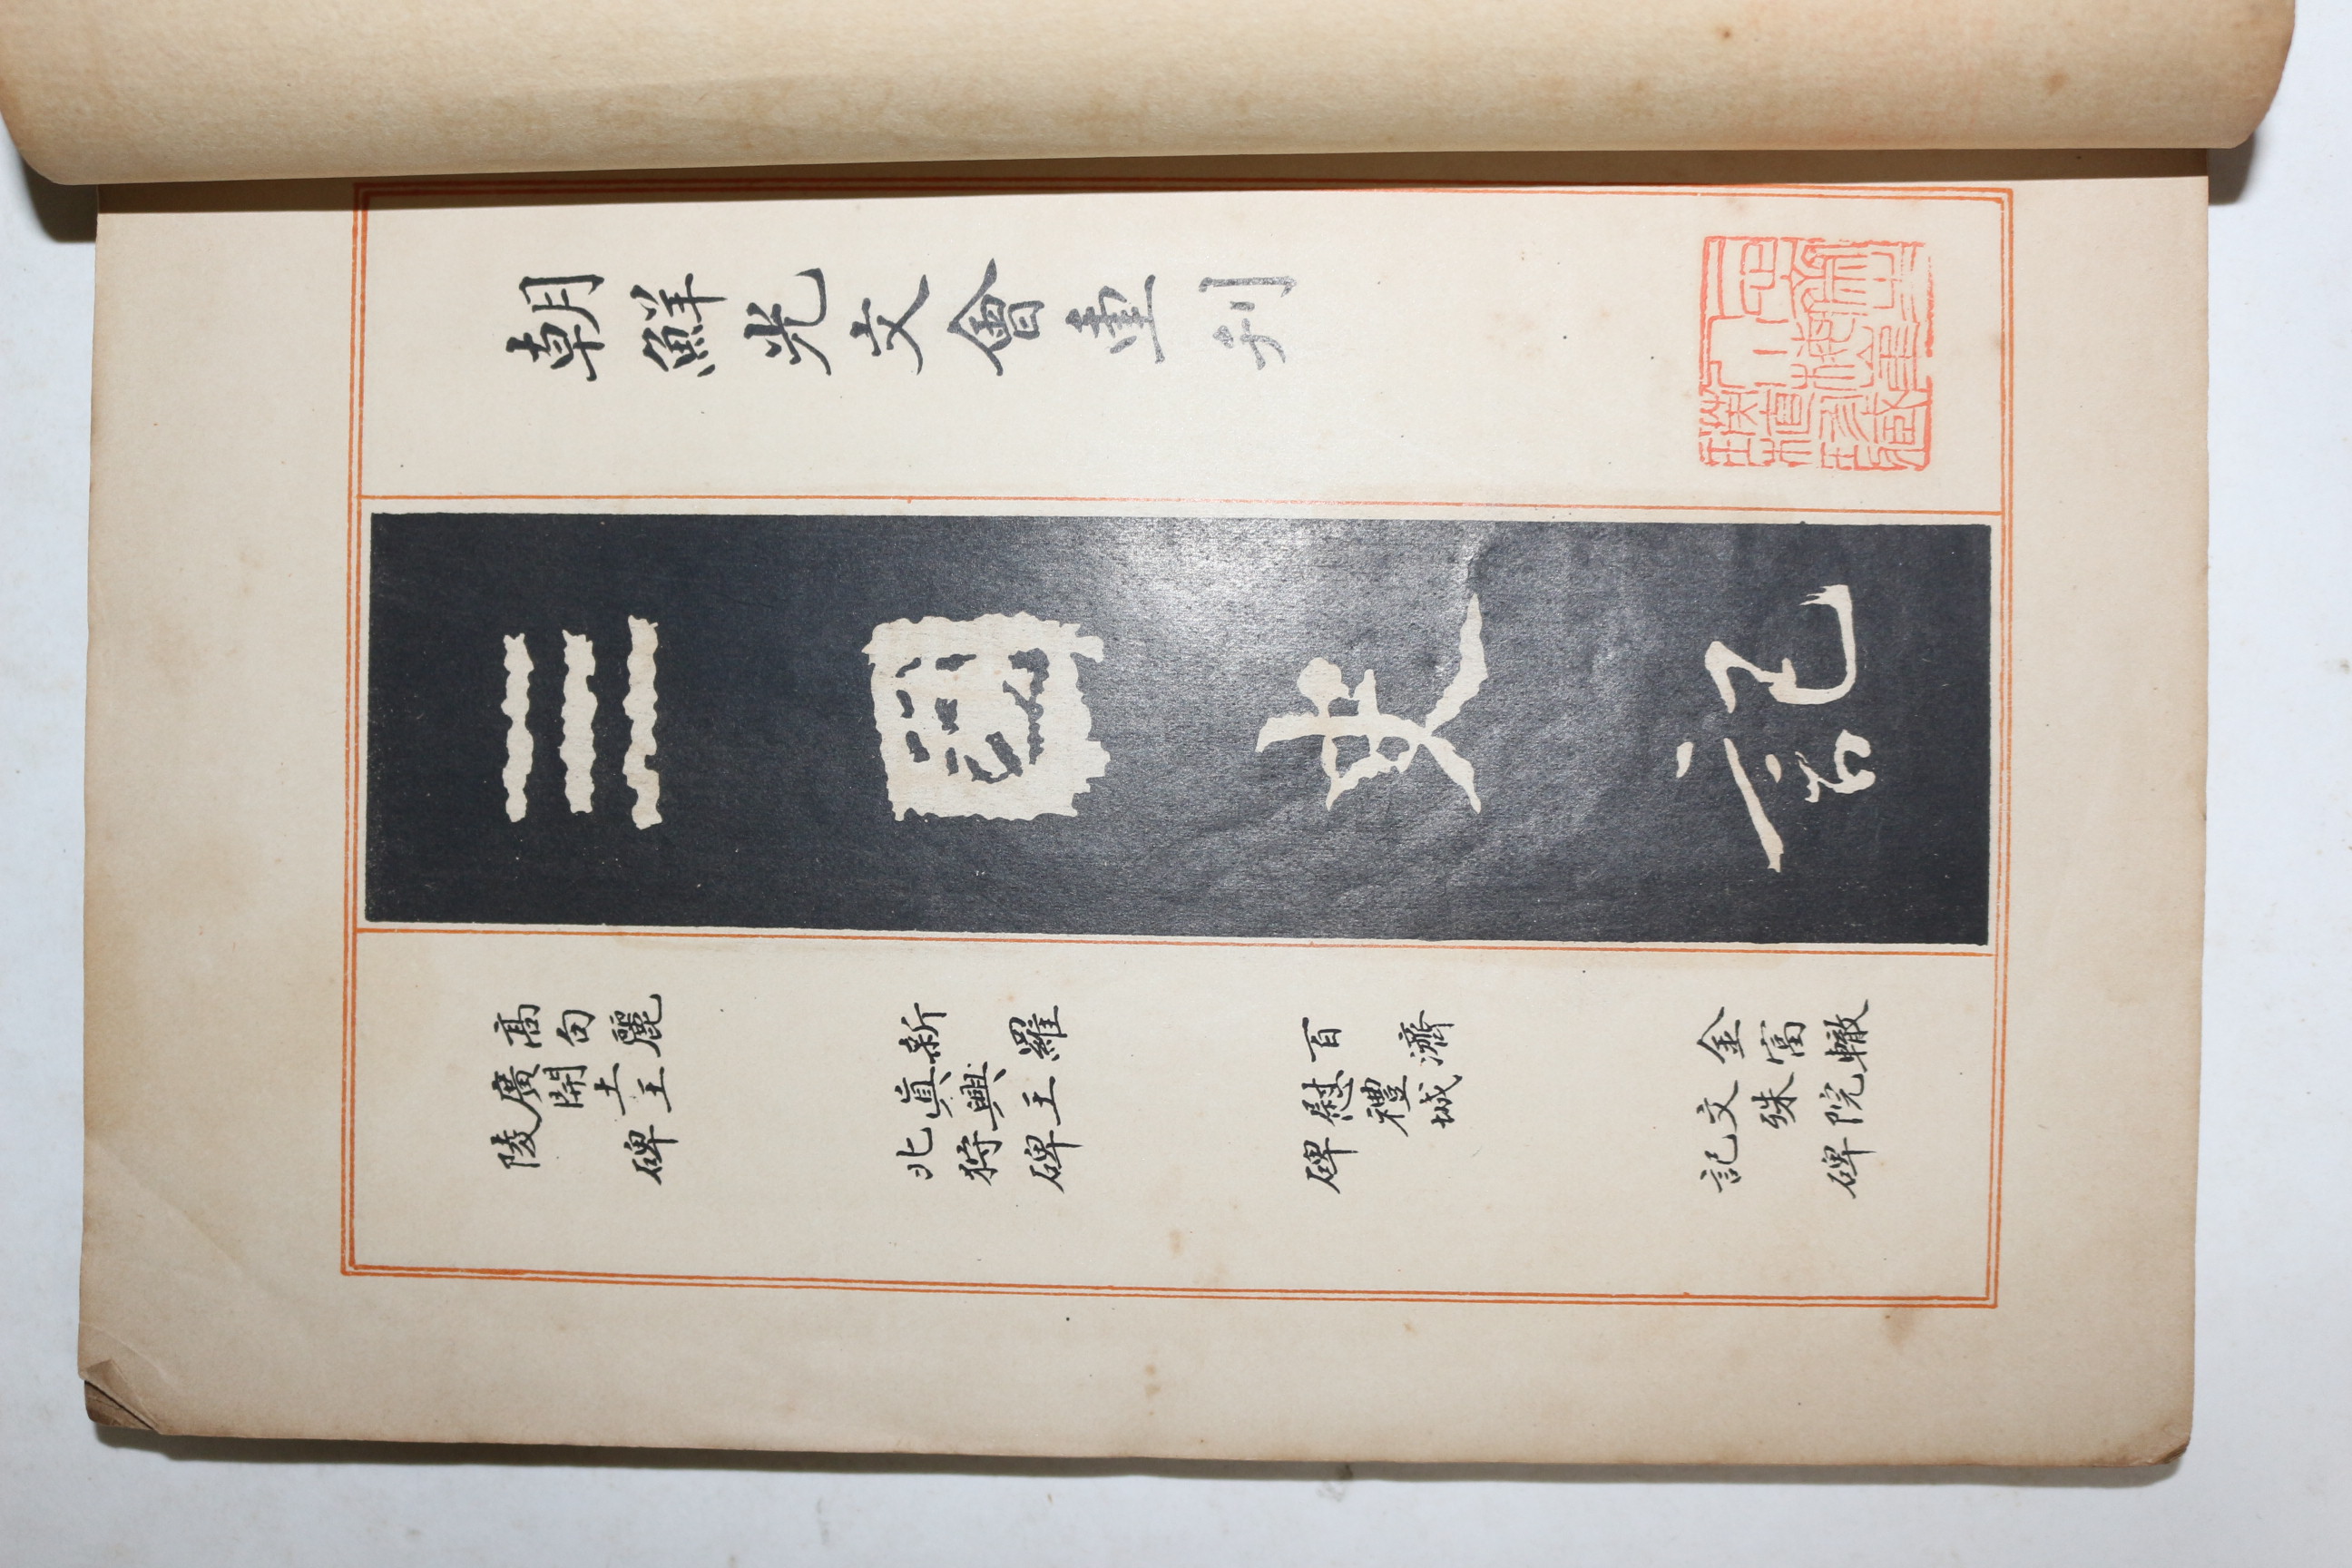 朝鮮光文會重刊
三國史記
高句麗
廣開土王
陵碑
新羅
眞興王
北狩碑
百濟
慰禮城
碑
金富轍
文殊院
記碑